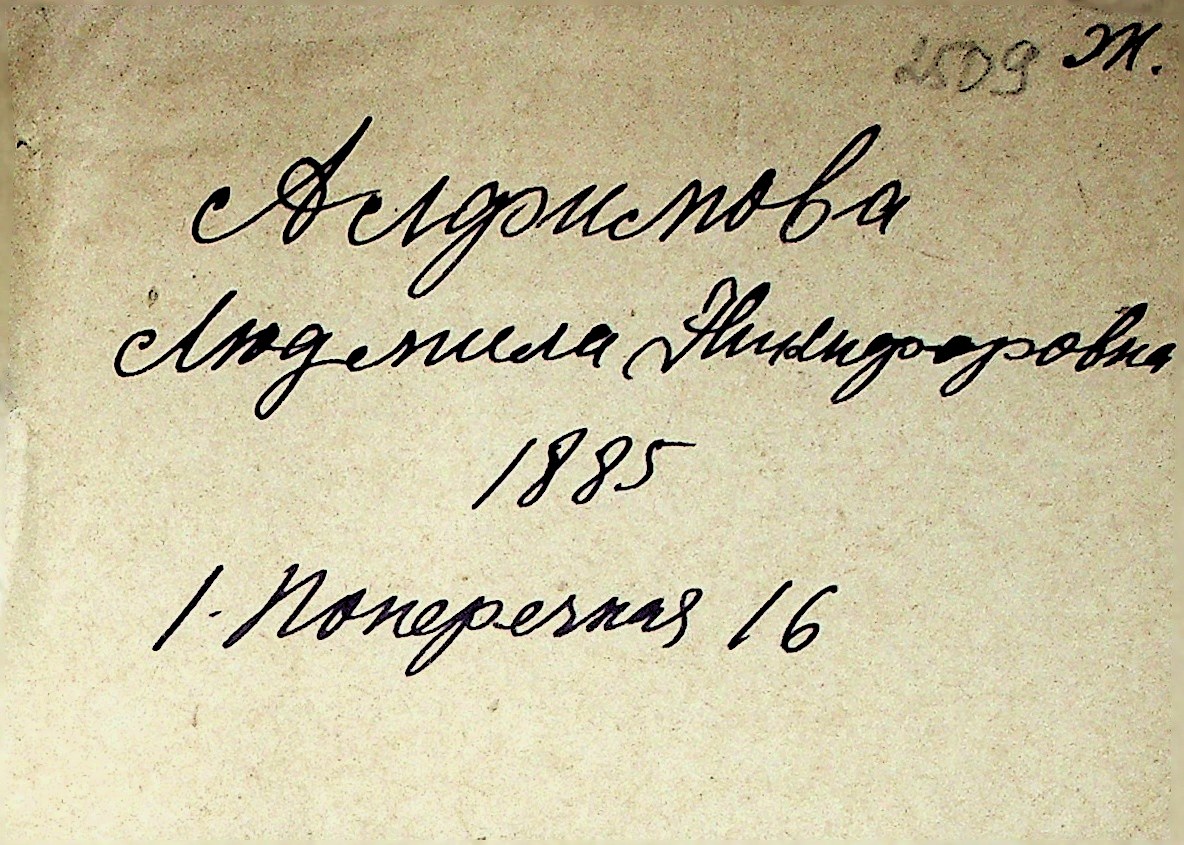 2509 Ж.
Алфимова
Людмила Никифоровна
1885
1-Поперечная 16